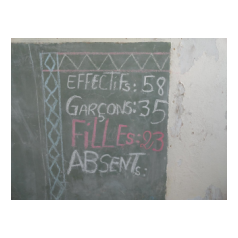 EFFECTIFS: 58
GARÇONS: 35
FILLES: 23
ABSENTS: